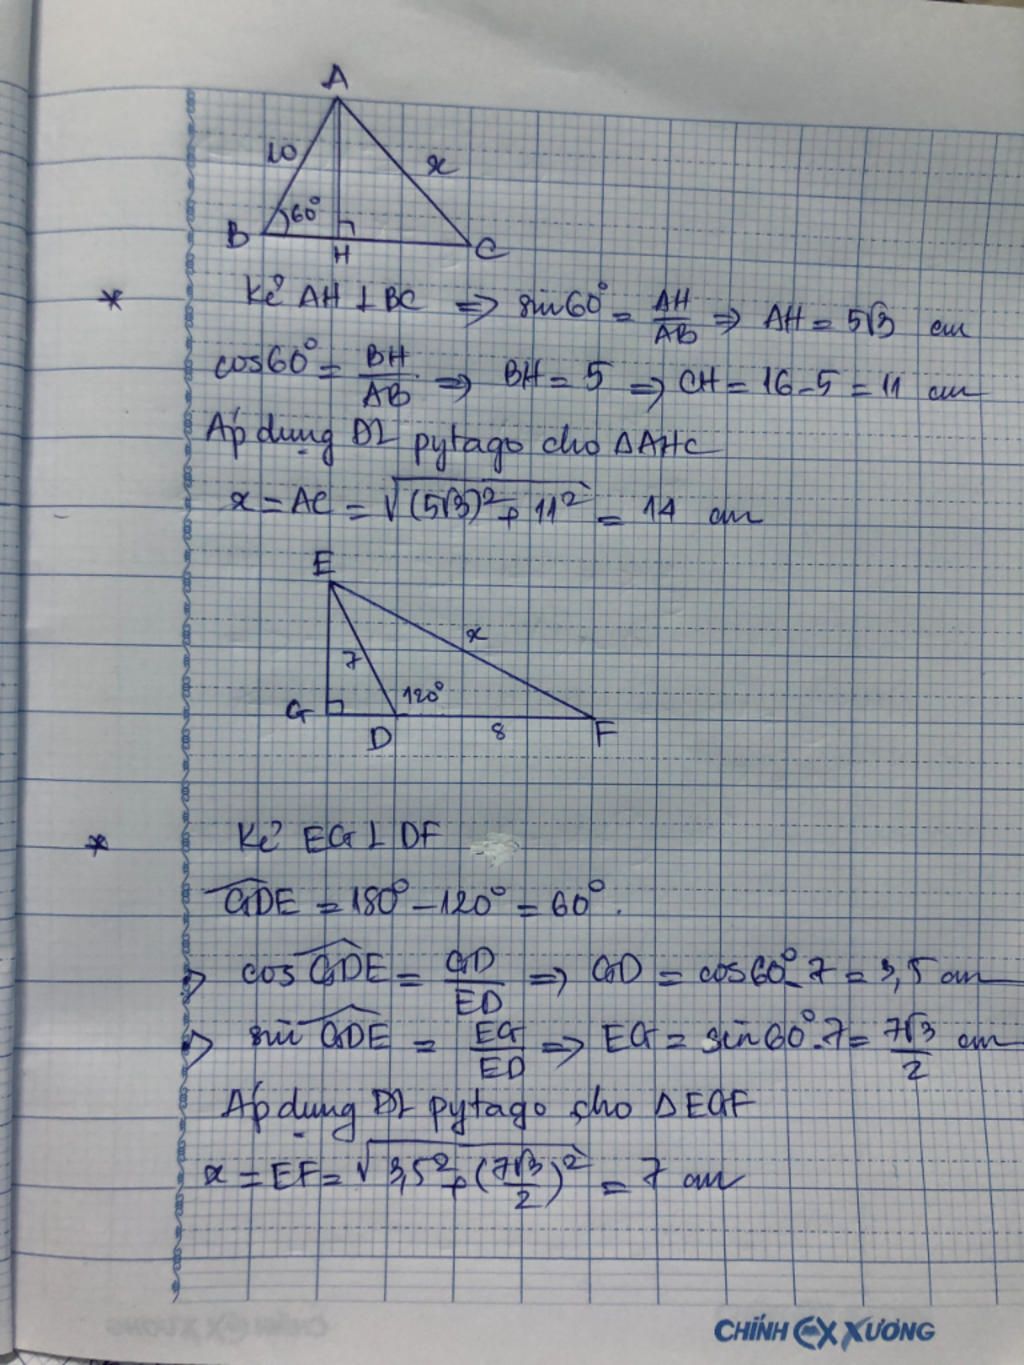 A
10
x
60°
B
H
C
* Kẻ AH ⊥ BC ⇒ sin60° = AH/AB ⇒ AH = 5√3 cm
cos60° = BH/AB ⇒ BH = 5 ⇒ CH = 16 - 5 = 11 cm
Áp dụng ĐL pytago cho ΔAHC
x = AC = √((5√3)² + 11²) = 14 cm
E
x
7
120°
G
D
8
F
* Kẻ EG ⊥ DF
GDE = 180° - 120° = 60°.
⇒ cos GDE = GD/ED ⇒ GD = cos60°.7 = 3,5 cm
⇒ sin GDE = EG/ED ⇒ EG = sin60°.7 = 7√3/2 cm
Áp dụng ĐL pytago cho ΔEGF
x = EF = √(3,5² + (7√3/2)²) = 7 cm
CHÍNH EX XƯƠNG